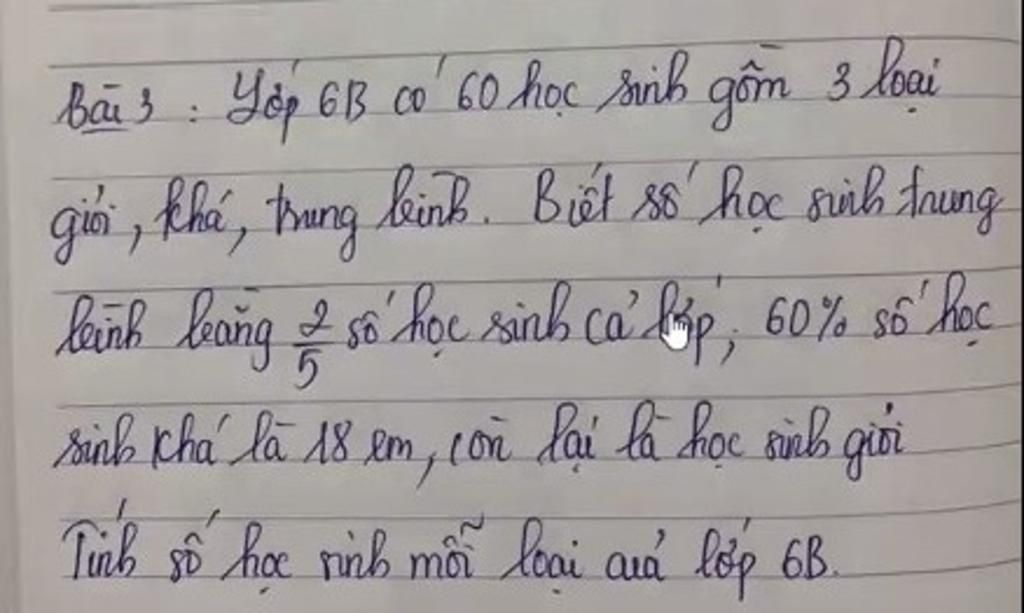 Bài 3 : Lớp 6B có 60 học sinh gồm 3 loại
giỏi, khá, trung bình. Biết số học sinh trung
bình bằng 2/5 số học sinh cả lớp, 60% số học
sinh khá là 18 em, còn lại là học sinh giỏi
Tính số học sinh mỗi loại của lớp 6B.